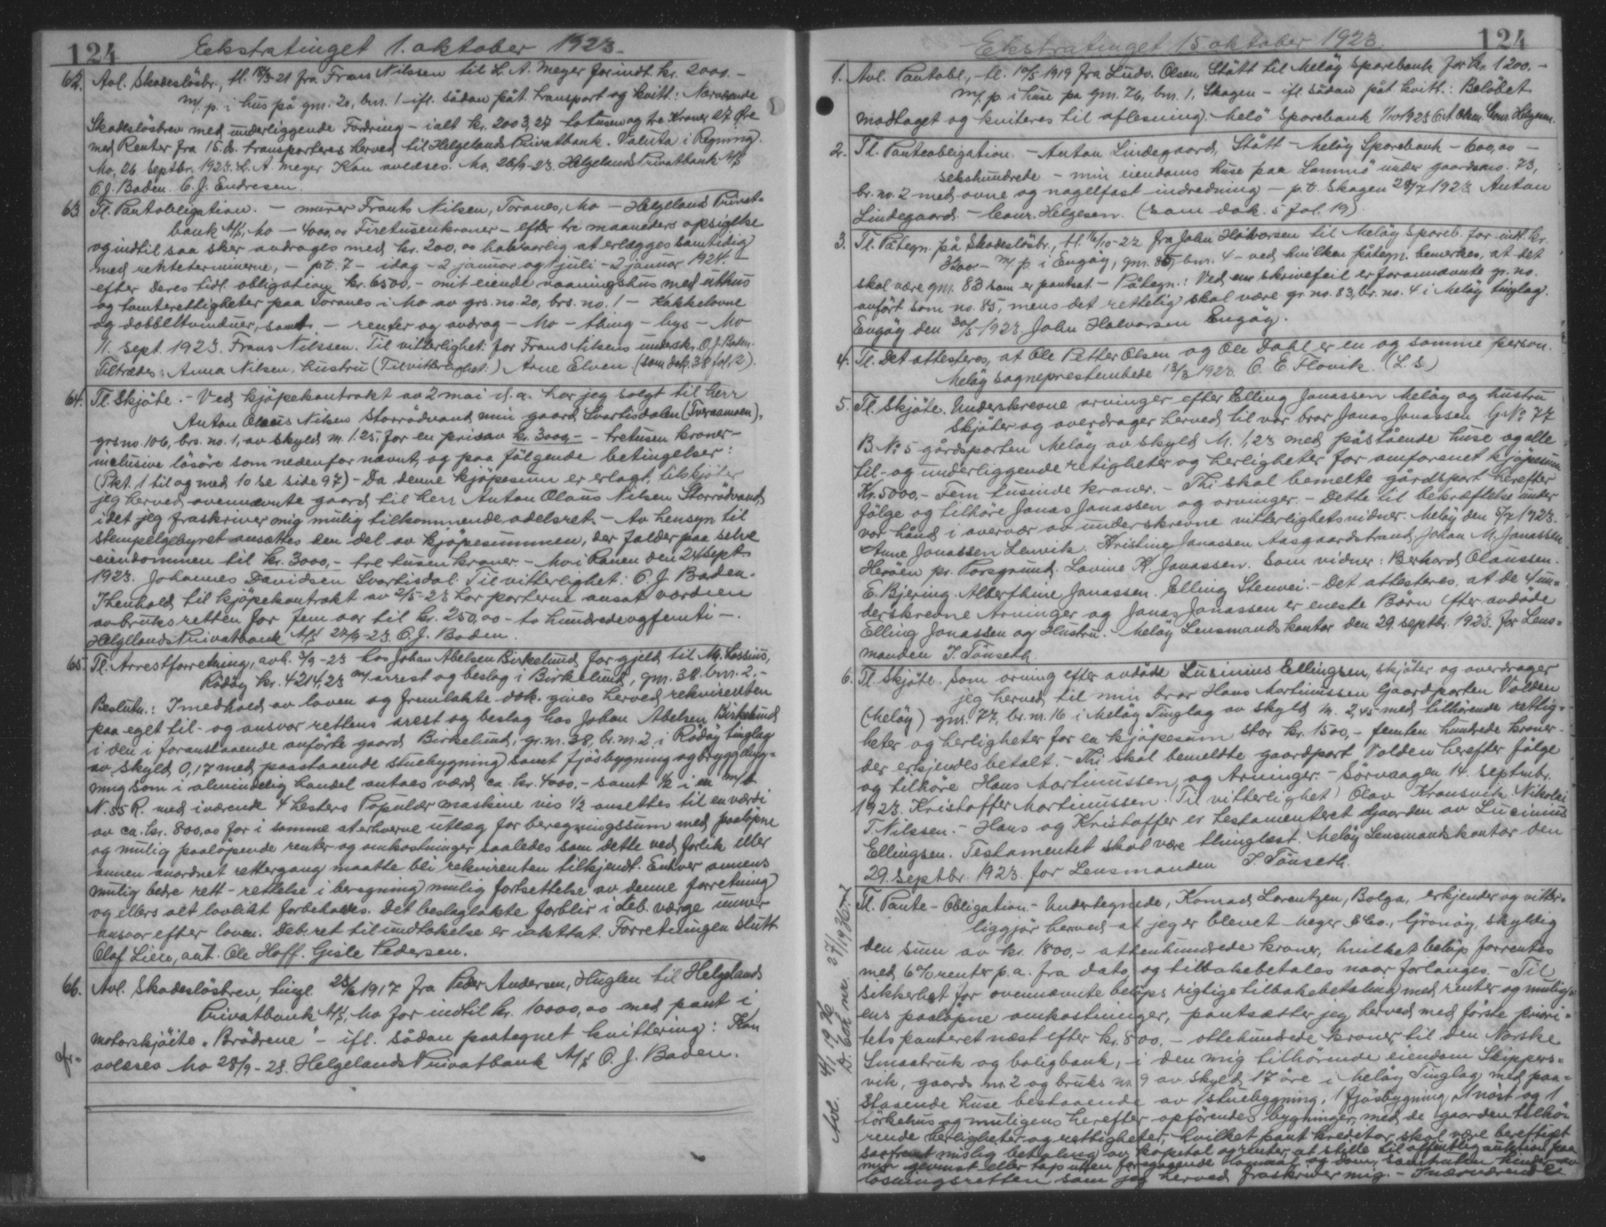 124
Ekstratinget 1. oktober 1923.
62. Avl. Skadeslösbr., tl. 19/3-21 fra Frans Nilssen til L. A. Meyer for indt. kr. 2000.-
m/ p. i hus på gnr. 20, bnr. 1 - ifl. sådan påt. transport og kvitt.: Nærværende
Skadeslösbrev med underliggende Fordring - ialt kr. 2003,27 - to tusen og tre Kroner 27 Øre
med Renter fra 15. ds. transporteres herved til Helgelands Privatbank. Valuta i Regning.
Mo, 26. Septbr. 1923. L. A. Meyer. Kan avlæses. Mo, 28/9-23. Helgelands Privatbank A/S
O. J. Boden. C. J. Endresen.
63. Tl. Pantobligation. - murer Frants Nilsen, Toranes, Mo - Helgelland Privat-
bank A/S, Mo - 4000,00 Firetusenkroner - efter tre maaneders opsigelse
og indtil saa sker avdrages med kr. 200,00 halvaarlig at erlægges samtidig
med rentetermiverne, - p.t. 7 - idag - 2 januar og 1 juli - 2 januar 1924. -
efter deres tidl. obligation kr. 6500,- mit eiende vaaningshus med uthus
og tomterettigheter paa Toranes i Mo av grs. no. 20, brs. no. 1 - Kakkelovne
og dobbeltvinduer, samt. - renter og avdrag - Mo - thing - bys - Mo
11. sept. 1923. Frans Nilssen. Til vitterlighet: for Frans Nilsens undersk. O. J. Boden.
Tiltrædes: Anna Nilsen, hustru (Til vitterlighet:) Arne Elven (som dok. 38 fol. 2).
64. Tl. Skjöte. - Ved kjöpekontrakt av 2 mai d. a. har jeg solgt til herr
Anton Olaus Nilsen Storrödvand min gaard Svartisdalen (Tveraamoen),
grs no. 106, brs. no. 1, av skyld m. 1.25, for en pris av kr. 3000,- - tretusen kroner -
inclusive lösöre som nedenfor nævnt, og paa fölgende betingelser:
(Pkt. 1 til og med 10 se side 97) - Da denne kjöpesum er erlagt, tilskjöter
jeg herved ovennævnte gaard til herr Anton Olaus Nilsen Storrödvand,
idet jeg fraskriver mig mulig tilkommende odelsret. - Av hensyn til
stempelgebyret ansættes den del av kjöpesummen, der falder paa selve
eiendommen til kr. 3000,- tre tusen kroner. - Mo i Ranen den 24 Sept.
1923. Johannes Davidsen Svartisdal. Til vitterlighet: O. J. Boden.
I henhold til kjöpekontrakt av 2/5-23 har parterne ansat værdien
av bruksretten for fem aar til kr. 250,00 - to hundrede og femti -.
Helgellands Privatbank A/S 27/9-23 O. J. Boden.
65. Tl. Arrestforretning, avh. 3/9-23 hos Johan Abelsen Birkelund, for gjeld til
Rödöy kr. 4214,23 m/ arrest og beslag i Birkelund, gnr. 38, bnr. 2. -
Beslutn.: I medhold av loven og fremlakte dok. gives herved rekvirenten
paa eget til- og ansvar rettens arest og beslag hos Johan Abelsen Birkelund
i den i foranstaaende anförte gaard Birkelund, gr. nr. 38, br. nr. 2 i Rödöy tinglag
av skyld 0,17 med paastaaende stuebygning samt fjösbygning og bryggebyg-
ning som i almindelig handel antaes værd ca. kr. 4000.- samt 1/2 i en m/k
N. 55 R. med inderende 4 hesters Populær maskine vis 1/2 ansettes til en værdi
av ca. kr. 800,00 for i samme at erhverve utlæg for beregningssum med paalöpne
og mulig paalöpende renter og omkostninger saaledes som dette ved forlik eller
annen anordnet rettergang maatte bli rekvirenten tilkjendt. Enhver annens
mulig bedre rett - rettelse i beregning mulig fortsettelse av denne forretning
og ellers alt lovlikt forbeholdes. Det beslaglakte forblir i deb. værge under
ansvar efter loven. Deb. ret til indtakelse er iakttat. Forretningen slutt
Olaf Lien, aut. Ole Hoff. Gisle Pedersen.
66. Avl. Skadeslösbrev, tingl. 25/6 1917 fra Peder Andersen, Huglen til Helgelands
Privatbank A/S, Mo for indtil kr. 10000,00 med pant i
motorskjöite "Brödrene" - ifl. sådan paategnet kvittering: Kan
avlæses Mo 28/9-23. Helgelands Privatbank A/S O. J. Boden.
124
Ekstratinget 15 oktober 1923.
1. Avl. Pantobl., tl. 1919 fra Ludv. Olsen Stått til Melöy Sparebank for kr. 1200.-
m/ p. i huse på gnr. 76, bnr. 1, Skagen - ifl. sådan påt. kvitt.: Belöbet
modtaget og kviteres til aflesning. Melö Sparebank 1923 Helgesen.
2. Tl. Panteobligation - Anton Lindegaard, Stått - Melöy Sparebank - 600,00 -
sekshundrede - min eiendoms huse paa under gaards no. 23,
br. no. 2 med ovne og nagelfast indredning - p.t. Skagen 28/7 1923 Anton
Lindegaard - Conr. Helgesen. (som dok. 5 fol. 19)
3. Tl. Påtegn. på Skadeslösbr., tl. 16/10-22 fra John Halvorsen til Melöy Spareb. for indt. kr.
3000 - m/ p. i Engöy, gnr. 85, bnr. 4 - ved hvilken påtegn. bemerkes, at det
skal være gnr. 83 som er pantsat - Påtegn.: Ved en skrivefeil er forannævnte gr. no.
anført som no. 85, mens det rettelig skal være gr. no. 83, br. no. 4 i Melöy tinglag.
Engöy den 30/5 1923. John Halvorsen Engöy.
4. Tl. Det attesteres, at Ole Petter Olsen og Ole Dahl er en og samme person.
Melöy sogneprestembede 13/3 1923. O. E. Flovik (L. S)
5. Tl. Skjöte. Underskrevne arvinger efter Elling Jonassen Melöy og hustru
skjöter og overdrager herved til vor bror Jonas Jonassen G No 77
B No 5 gårdsparten Melöy av skyld M. 1,23 med påstående huse og alle
til- og underliggende retigheter og herligheter for omforenet kjöpesum
Kr. 5000,- Fem tusinde kroner. - Thi skal bemelte gårdspart herefter
fölge og tilhöre Jonas Jonassen og arvinger. - Dette til bekræftelse under
vor hånd i overvær av underskrevne vitterlighetsvidner. Melöy den 5/7 1923.
Anne Jonassen Lenvik. Kristine Jonassen Aasgaardstrand, Johan M. Jonassen
Heröen pr. Porsgrund. Lovine K. Jonassen. Som vidner: Berhard Olaussen.
E. Bjering Albertine Jonassen. Elling Stenvei. - Det attesteres, at de 4 un-
derskrevne Arvinger og Jonas Jonassen er eneste Börn efter avdöde
Elling Jonassen og Hustru. - Melöy Lensmands kontor den 29. septbr. 1923. for Lens-
manden J. Tönseth.
6. Tl. Skjöte. Som arving efter avdöde Lusinius Ellingsen, skjöter og overdrager
jeg herved til min bror Hans Martinussen Gaardparten Volden
(Melöy) gnr. 77, br. nr. 16 i Melöy Tinglag av skyld m. 2,45 med tilhörende rettig-
heter og herligheter for en kjöpesum stor kr. 1500,- femten hundrede kroner -
der erkjendes betalt. - Thi skal bemeldte gaardpart Volden herefter fölge
og tilhöre Hans Martinussen og Arvinger. - Sörvaagen 14. septmbr.
1923. Kristoffer Martinussen. Til vitterlighet: Olav Kransvik. Nikolai
T. Nilssen. - Hans og Kristoffer er testamenteret Gaarden av Lucinius
Ellingsen. Testamentet skal være thinglæst. Melöy Lensmandskontor den
29. septbr. 1923. for Lensmanden J Tönseth.
Tl. Pante-Obligation. Undertegnede, Konrad Lorentzen, Bolga, erkjender og vitter-
liggjör herved at jeg er blevet Meyer & Co., Grönöy, skyldig
den sum av kr. 1800,- attenhundrede kroner, hvilket belöp forrentes
med 6% renter p. a. fra dato, og tilbakebetales naar forlanges. - Til
sikkerhet for ovennævnte belöps rigtige tilbakebetaling med renter og mulig-
ens paalöpne omkostninger, pantsætter jeg herved med förste priori-
tets panteret næst efter kr. 800,- ottehundrede kroner til Den Norske
Smaabruk og boligbank, - i den mig tilhörende eiendom Skippers-
vik, gaards nr. 2 og bruks nr. 9 av skyld 17 öre i Melöy Tinglag med paa-
staaende huse bestaaende av 1 stuebygning, 1 fjösbygning, 1 nöst og 1
törkehus og muligens herefter opförendes bygninger, med de gaarden tilhö-
rende herligheter og rettigheter, hvilket pant kreditor skal være berettiget
saafremt mislig betaling av kapital og renter, at stille til offentlig auktion paa
min gevinst eller tap uten foregaaende lovmaal og dom,
lösningsretten som jeg herved fraskriver mig. -